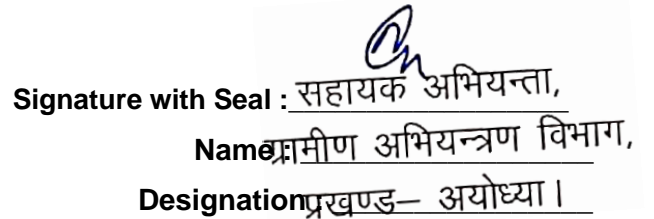 Signature with Seal : सहायक अभियन्ता,
Name : ग्रामीण अभियन्त्रण विभाग,
Designation प्रखण्ड– अयोध्या।